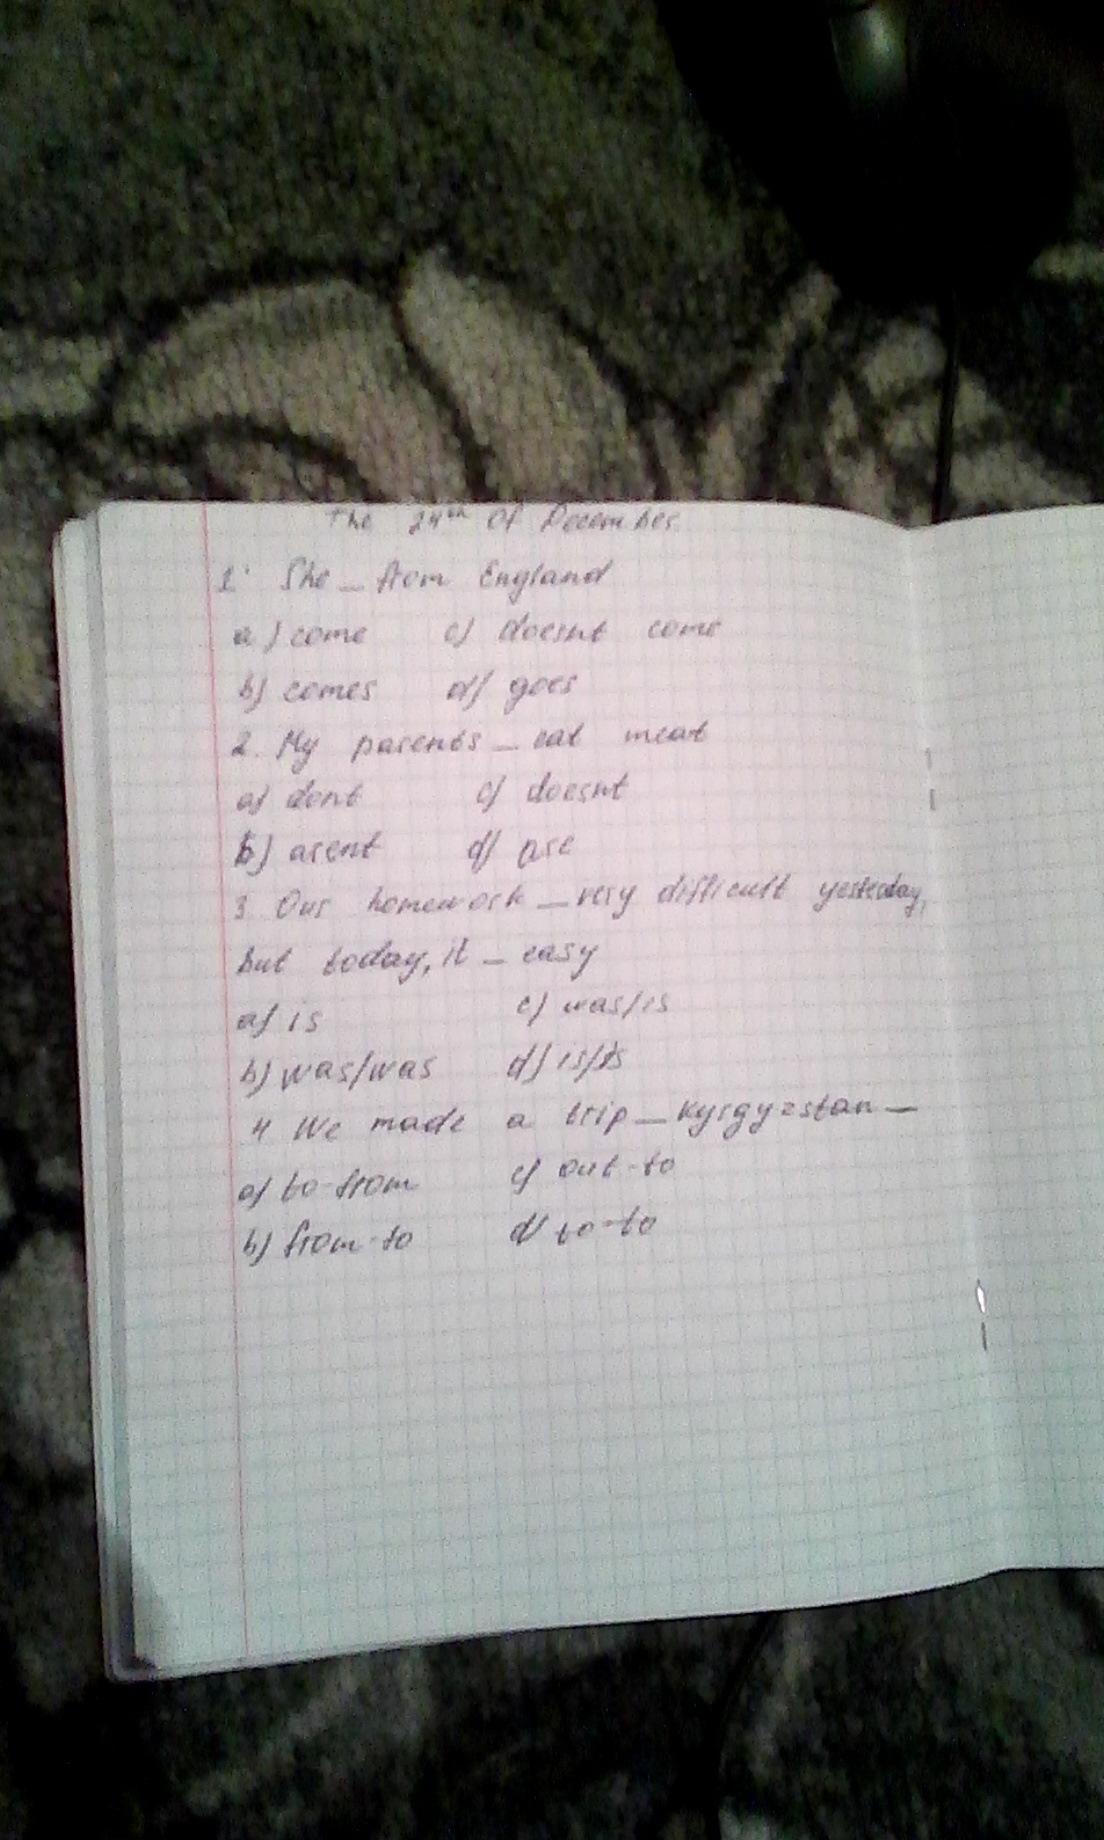 The 24th Of December
1. She _ from England
a) come c) doesnt come
b) comes d) goes
2. My parents _ eat meat
a) dont c) doesnt
b) arent d) are
3 Our homework _ very difficult yesterday,
but today, it _ easy
a) is c) was/is
b) was/was d) is/is
4 We made a trip _ Kyrgyzstan _
a) to-from c) out-to
b) from-to d) to-to